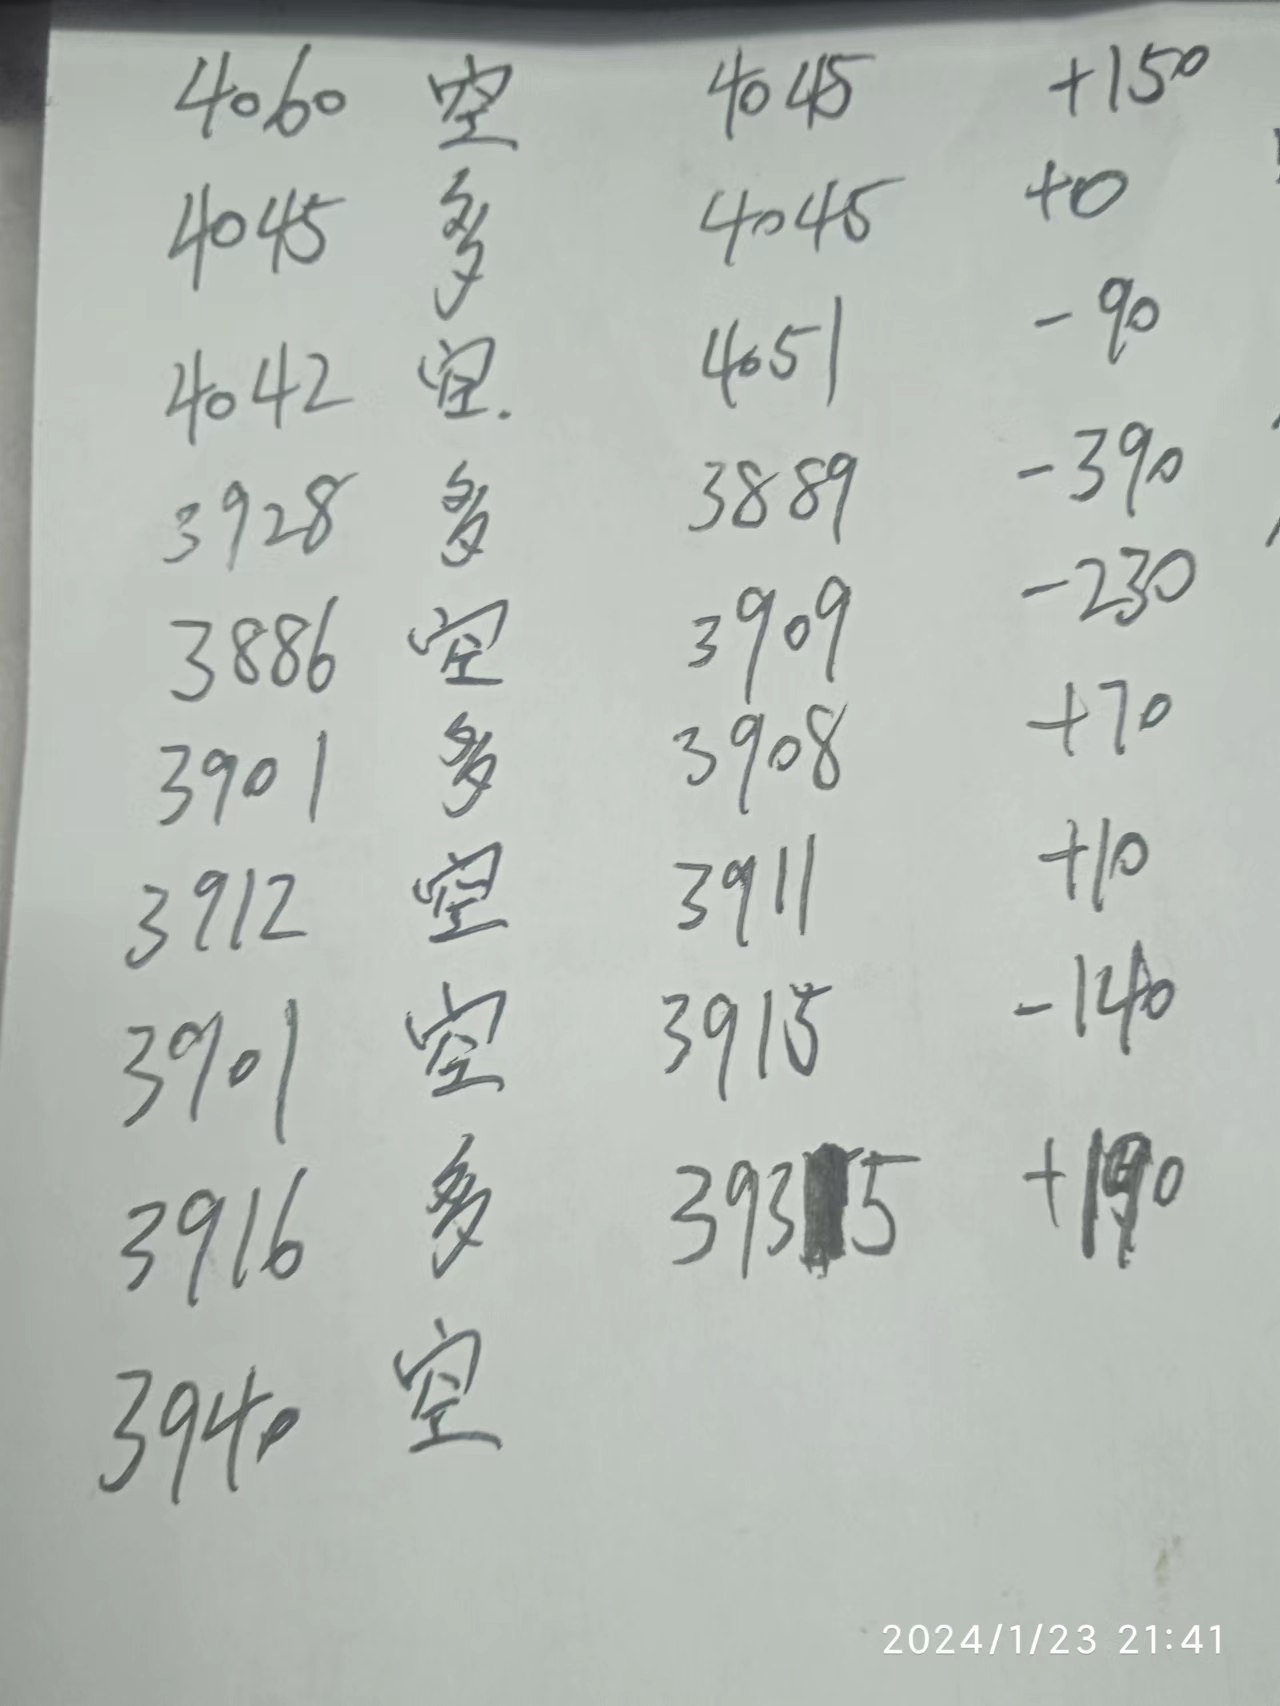 4060 空 4045 +150
4045 多 4045 +0
4042 空. 4051 -90
3928 多 3889 -390
3886 空 3909 -230
3901 多 3908 +70
3912 空 3911 +10
3901 空 3915 -140
3916 多 3935 +190
3940 空
2024/1/23 21:41